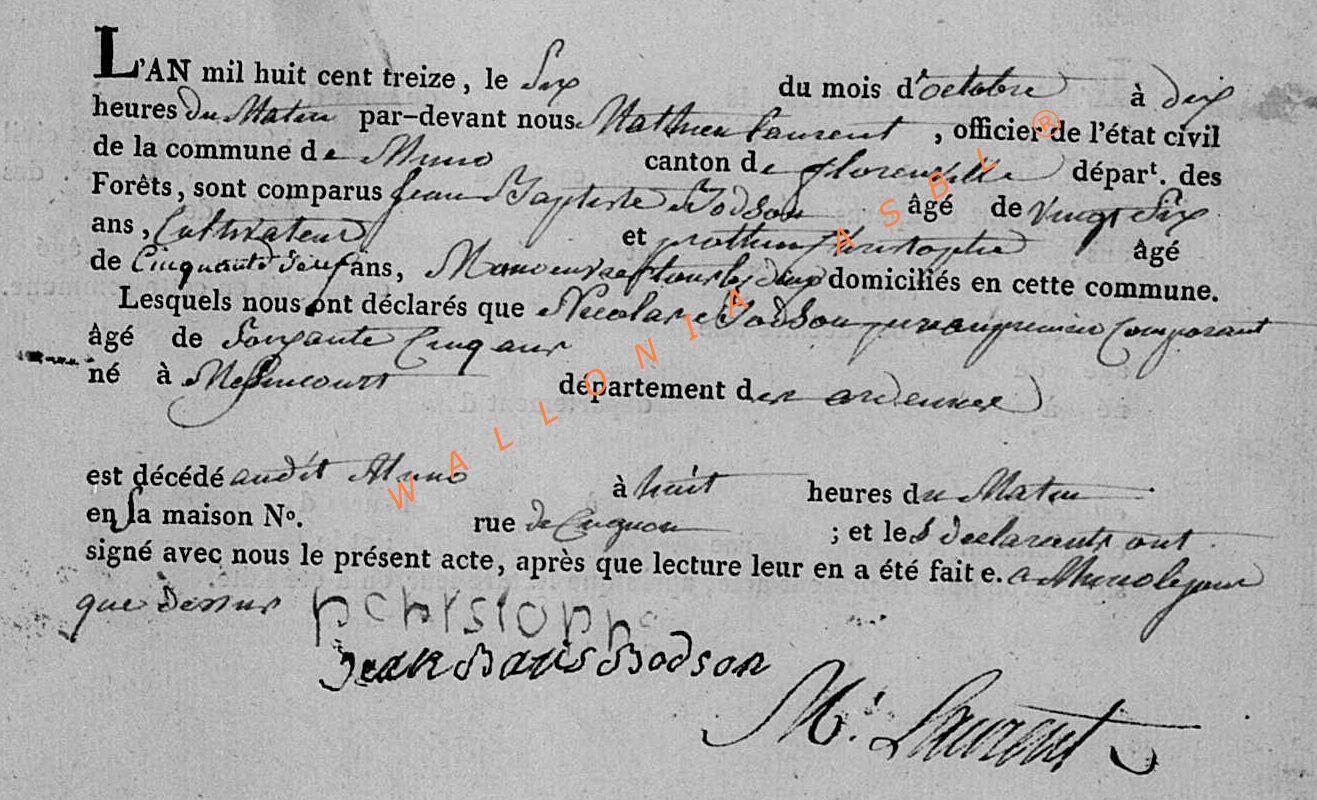 L'AN mil huit cent treize, le Six du mois d'octobre à dix
heures du Matin par-devant nous Mathieu Laurent, officier de l'état civil
de la commune de Muno canton de florenville départ. des
Forêts, sont comparus Jean Baptiste Bodson âgé de Vingt Six
ans, Cultivateur et christophe âgé
de Cinquante ans, Manoeuvre tous les deux domiciliés en cette commune.
Lesquels nous ont déclarés que Nicolas Bodson père au premier Comparant
âgé de Soixante Cinq ans
né à Messincourt département des ardennes
est décédé audit Muno à huit heures du Matin
en sa maison No. rue de Cugnon ; et les déclarants ont
signé avec nous le présent acte, après que lecture leur en a été faite. a Muno le jour
que dessus
pchrstoph
Jean Batis Bodson
M. Laurent
WALLONIA ASBL ®